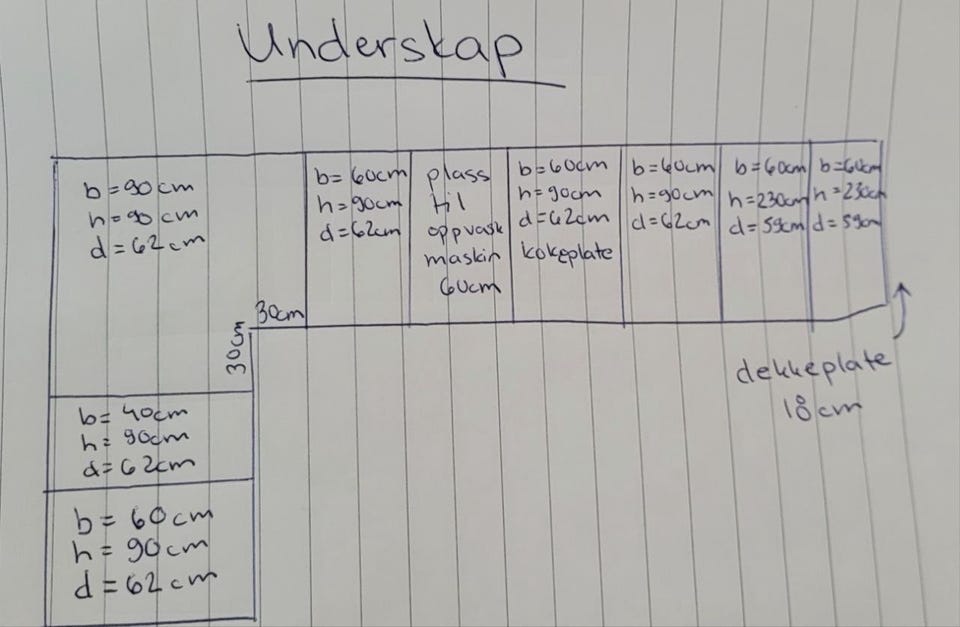 Underskap
b=90cm
h=90cm
d=62cm
b=60cm
h=90cm
d=62cm
plass
til
oppvask
maskin
60cm
b=60cm
h=90cm
d=62cm
kokeplate
b=60cm
h=90cm
d=62cm
b=60cm
h=230cm
d=59cm
b=60cm
h=230cm
d=59cm
30cm
30cm
dekkeplate
18cm
b=40cm
h=90cm
d=62cm
b=60cm
h=90cm
d=62cm